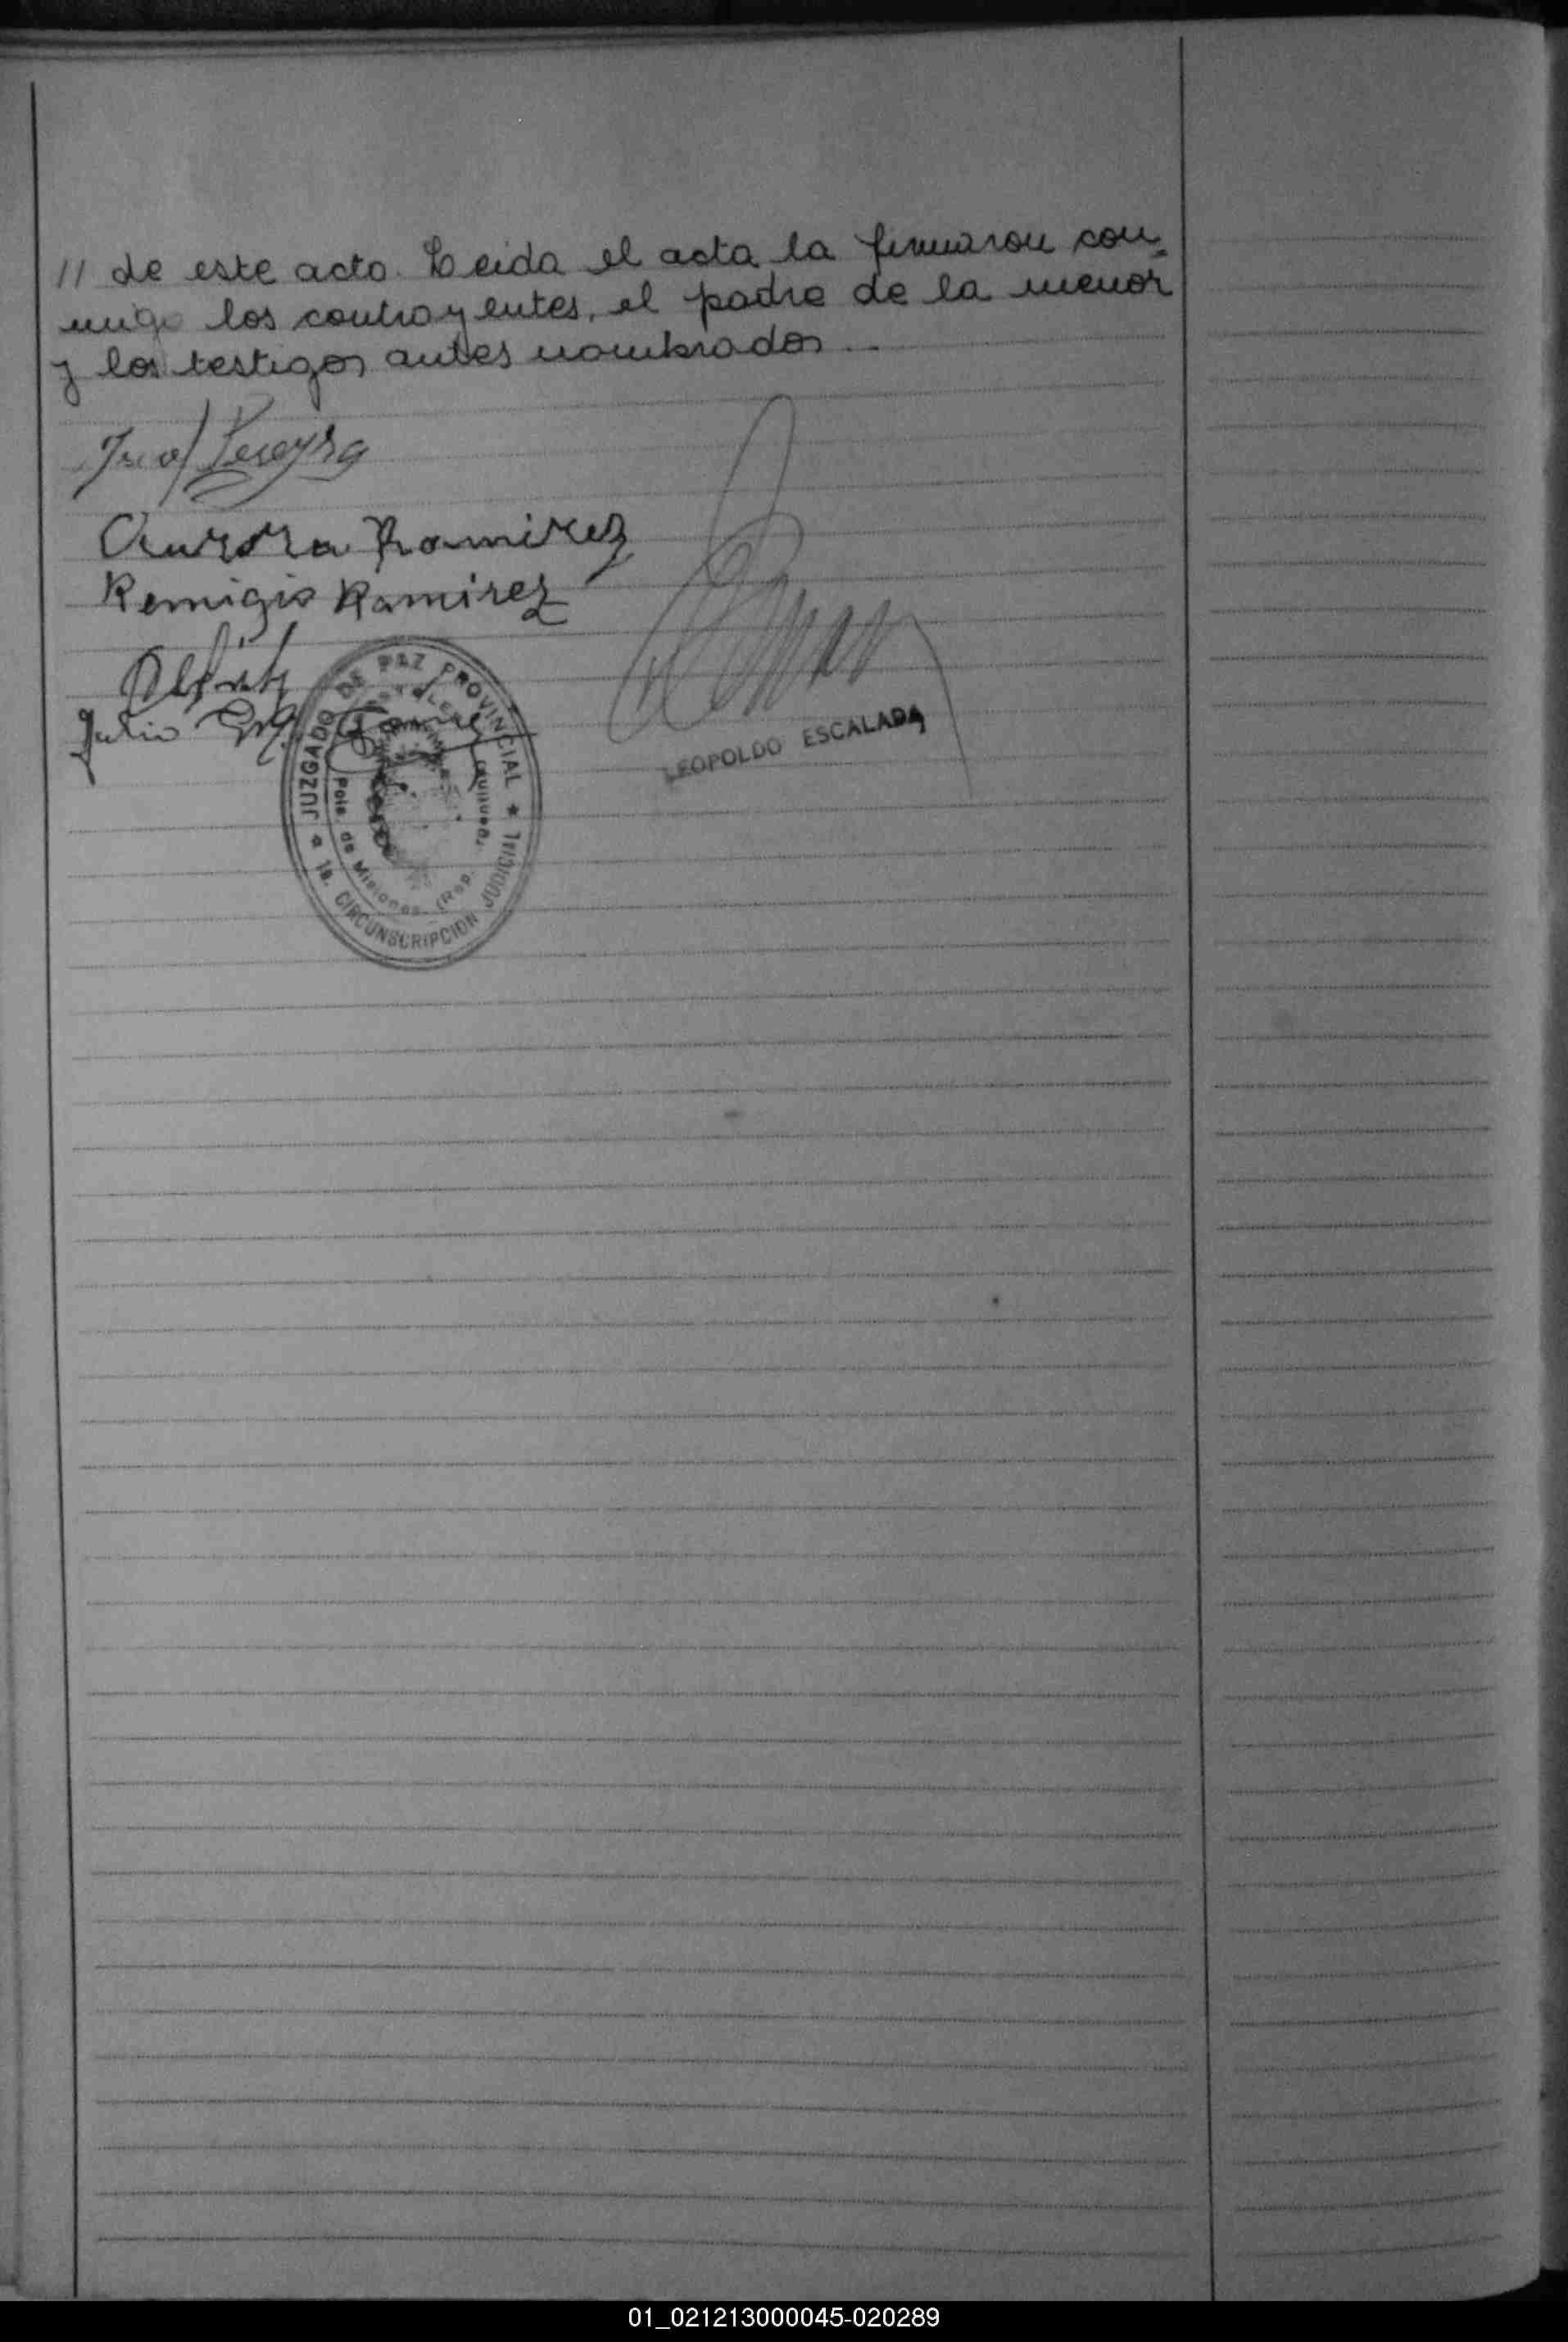 // de este acto. Leida el acta la firmaron con-
migo los contrayentes, el padre de la menor
y los testigos antes nombrados ..
Pereyra
Aurora Ramirez
Remigio Ramirez
Julio
LEOPOLDO ESCALADA
* JUZGADO DE PAZ PROVINCIAL *
1a. CIRCUNSCRIPCION JUDICIAL
Pcia. de Misiones (Rep.
01_021213000045-020289